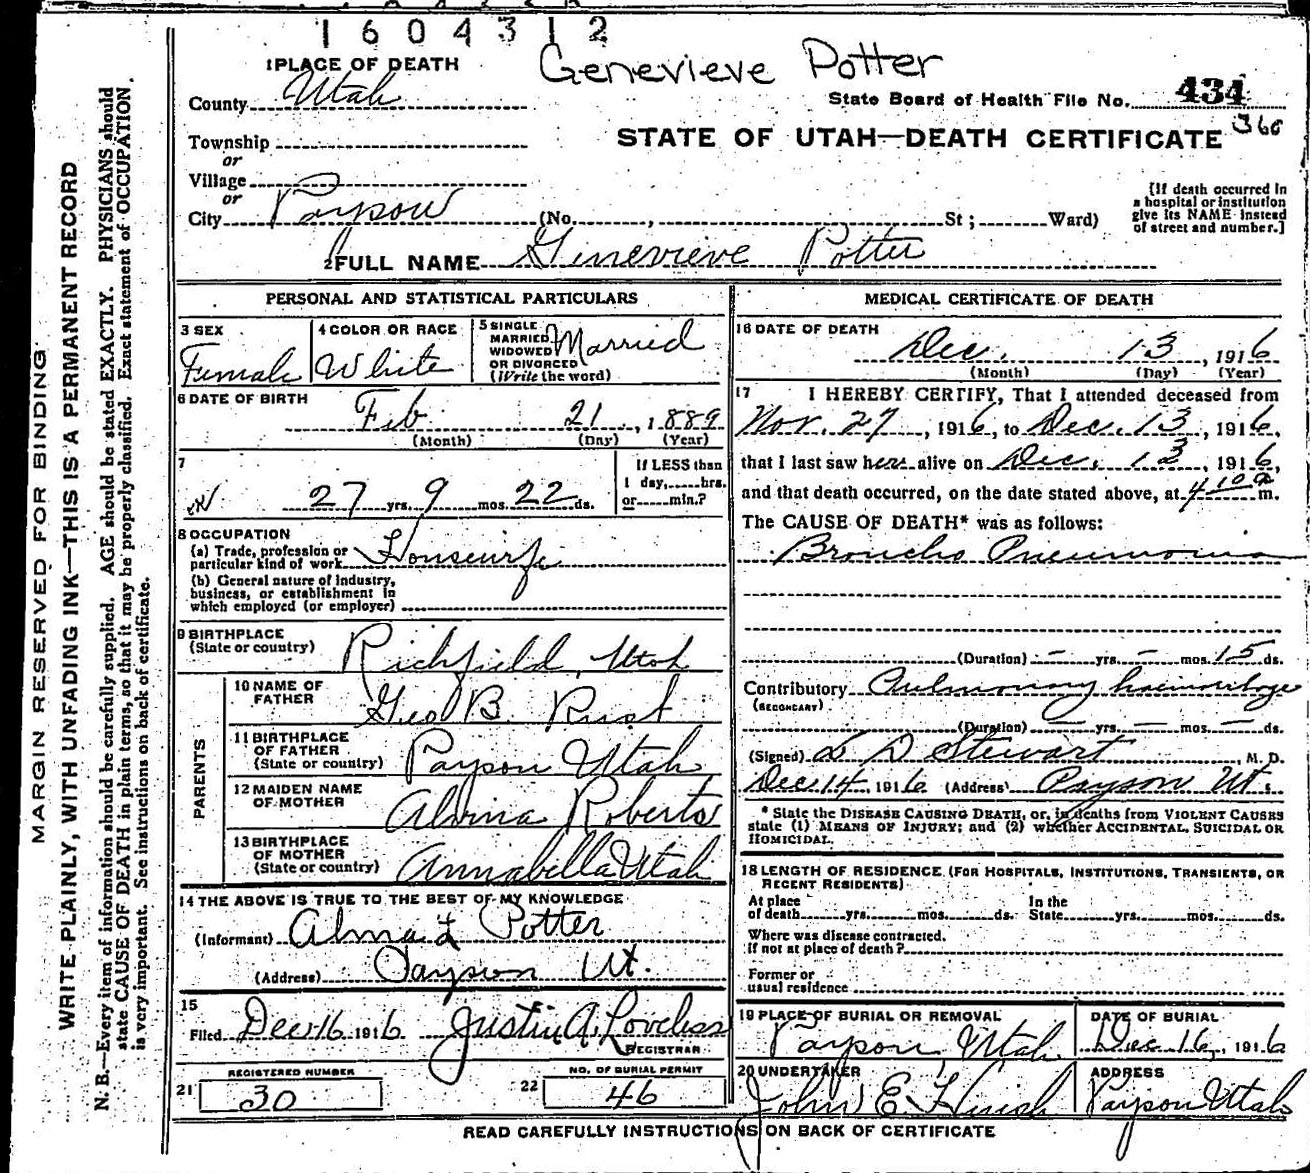 1604312
Genevieve Potter
1 PLACE OF DEATH
County Utah
State Board of Health File No. 434
360
Township
or
STATE OF UTAH—DEATH CERTIFICATE
Village
or
City Payson (No. , St ; Ward)
[If death occurred in
a hospital or institution
give its NAME instead
of street and number.]
2 FULL NAME Genevieve Potter
PERSONAL AND STATISTICAL PARTICULARS
3 SEX
Female
4 COLOR OR RACE
White
5 SINGLE
MARRIED
WIDOWED
OR DIVORCED
(Write the word)
Married
6 DATE OF BIRTH
Feb 21, 1889
(Month) (Day) (Year)
7
27 yrs. 9 mos. 22 ds.
If LESS than
1 day, hrs.
or min.?
8 OCCUPATION
(a) Trade, profession or
particular kind of work Housewife
(b) General nature of industry,
business, or establishment in
which employed (or employer)
9 BIRTHPLACE
(State or country) Richfield, Utah
PARENTS
10 NAME OF
FATHER Geo B. Rust
11 BIRTHPLACE
OF FATHER
(State or country) Payson Utah
12 MAIDEN NAME
OF MOTHER Alvina Roberts
13 BIRTHPLACE
OF MOTHER
(State or country) Annabella Utah
14 THE ABOVE IS TRUE TO THE BEST OF MY KNOWLEDGE
(Informant) Potter
(Address) Payson Ut.
15
Filed Dec 16 1916 Justin A. Loveless
REGISTRAR
21 REGISTERED NUMBER
30
22 NO. OF BURIAL PERMIT
46
MEDICAL CERTIFICATE OF DEATH
16 DATE OF DEATH
Dec. 13, 1916
(Month) (Day) (Year)
17 I HEREBY CERTIFY, That I attended deceased from
Nov. 27, 1916, to Dec. 13, 1916,
that I last saw her alive on Dec. 13, 1916,
and that death occurred, on the date stated above, at 4 10 a m.
The CAUSE OF DEATH* was as follows:
Broncho Pneumonia
(Duration) — yrs. — mos. 15 ds.
Contributory Pulmonary haemorhage
(SECONDARY)
(Duration) — yrs. — mos. — ds.
(Signed) L D Stewart, M. D.
Dec 14, 1916 (Address) Payson Ut.
* State the DISEASE CAUSING DEATH, or, in deaths from VIOLENT CAUSES
state (1) MEANS OF INJURY; and (2) whether ACCIDENTAL, SUICIDAL OR
HOMICIDAL.
18 LENGTH OF RESIDENCE (FOR HOSPITALS, INSTITUTIONS, TRANSIENTS, OR
RECENT RESIDENTS)
At place
of death yrs. mos. ds.
In the
State yrs. mos. ds.
Where was disease contracted.
If not at place of death?
Former or
usual residence
19 PLACE OF BURIAL OR REMOVAL
Payson Utah
DATE OF BURIAL
Dec 16, 1916
20 UNDERTAKER
John E
ADDRESS
Payson Utah
READ CAREFULLY INSTRUCTIONS ON BACK OF CERTIFICATE
MARGIN RESERVED FOR BINDING
WRITE PLAINLY, WITH UNFADING INK—THIS IS A PERMANENT RECORD
N. B.—Every item of information should be carefully supplied. AGE should be stated EXACTLY. PHYSICIANS should
state CAUSE OF DEATH in plain terms, so that it may be properly classified. Exact statement of OCCUPATION
is very important. See instructions on back of certificate.